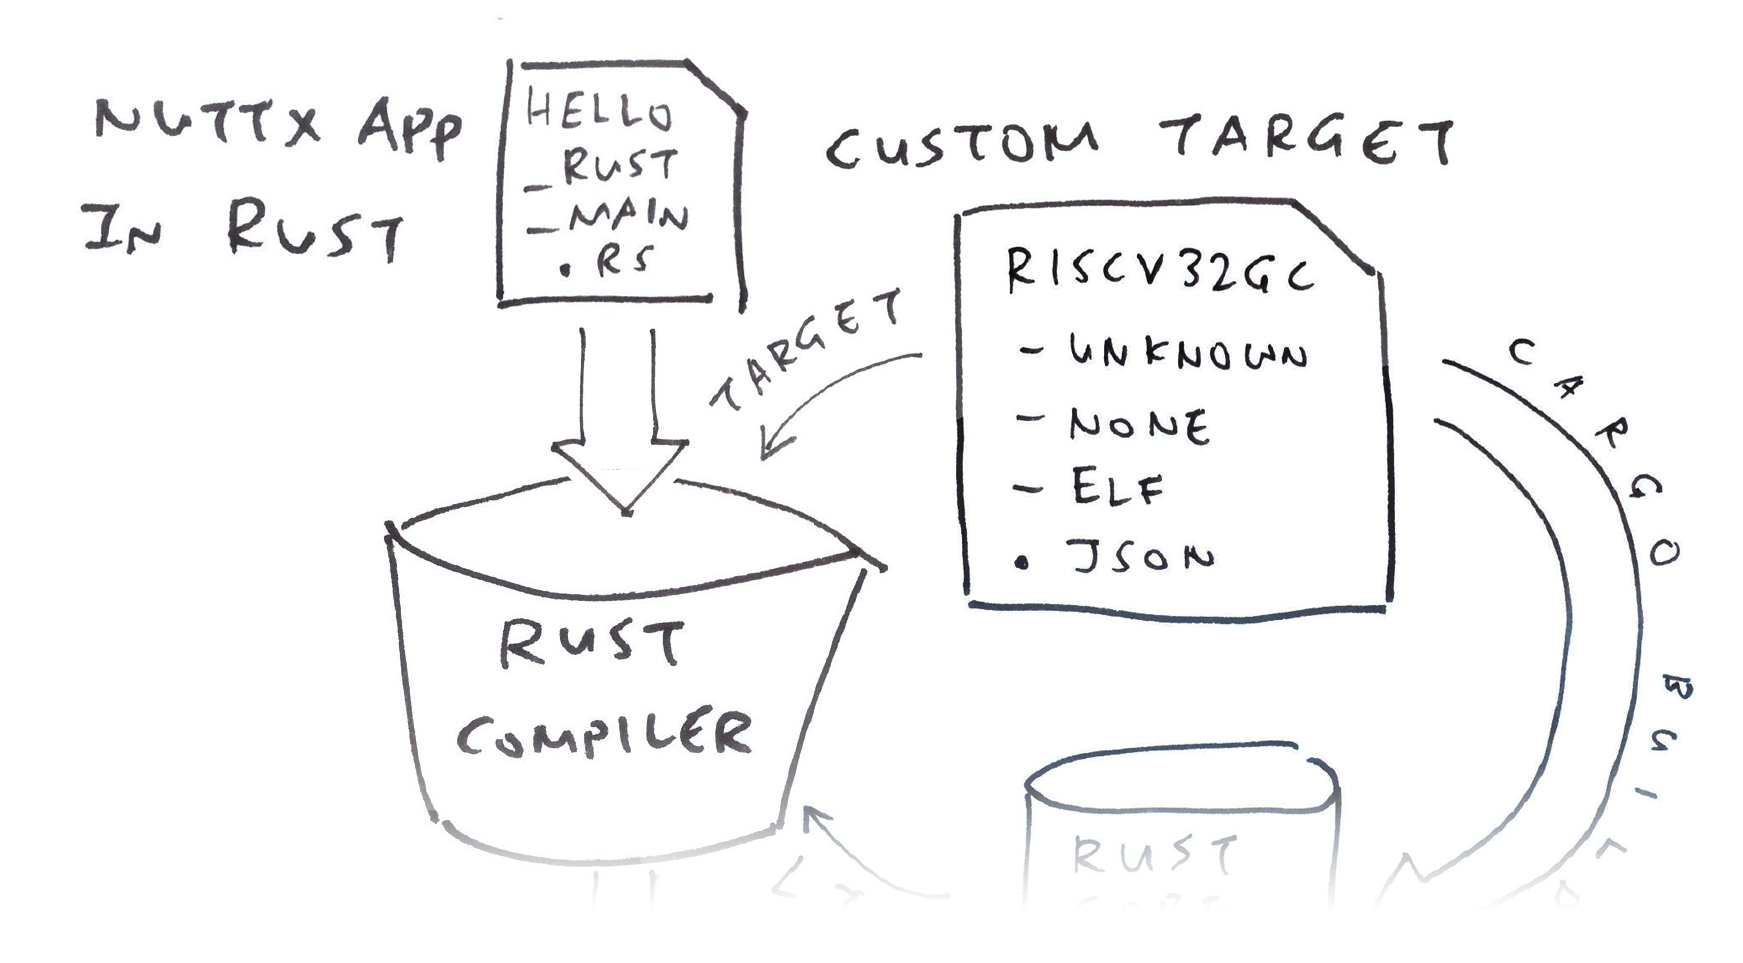 NUTTX APP
IN RUST
HELLO
_RUST
_MAIN
.RS
CUSTOM TARGET
RISCV32GC
- UNKNOWN
- NONE
- ELF
. JSON
TARGET
CARGO BUI
RUST
COMPILER
RUST